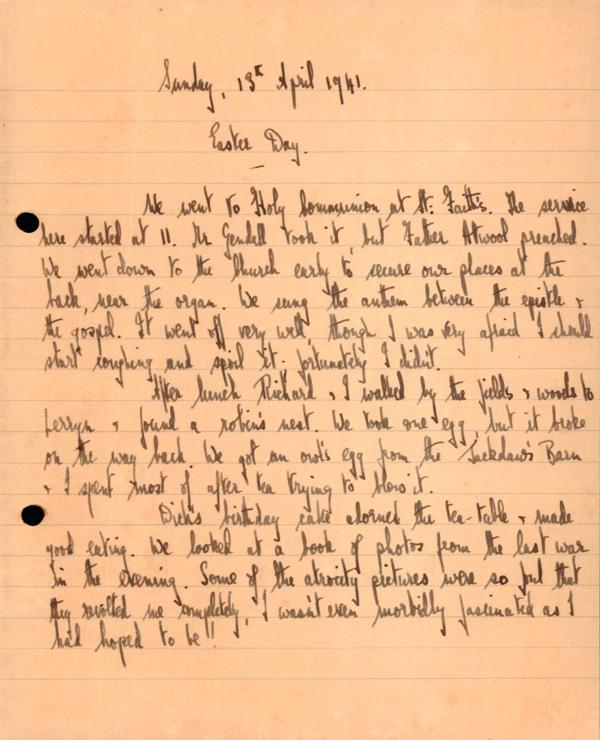 Sunday, 13th April 1941.
Easter Day.
We went to Holy Communion at St. Faith's. The service
here started at 11. Mr Gendall took it but Father Atwood preached.
We went down to the Church early to secure our places at the
back, near the organ. We sung the anthem between the epistle &
the gospel. It went off very well, though I was very afraid I should
start coughing and spoil it. fortunately I didn't.
After lunch Richard & I walked by the fields & woods to
Lerryn & found a robin's nest. We took one egg, but it broke
on the way back. We got an owl's egg from the Jackdaw's Barn
& I spent most of after tea trying to blow it.
Dick's birthday cake adorned the tea-table & made
good eating. We looked at a book of photos from the last war
in the evening. Some of the atrocity pictures were so that
they revolted me completely, I wasn't even morbidly fascinated as I
had hoped to be!!